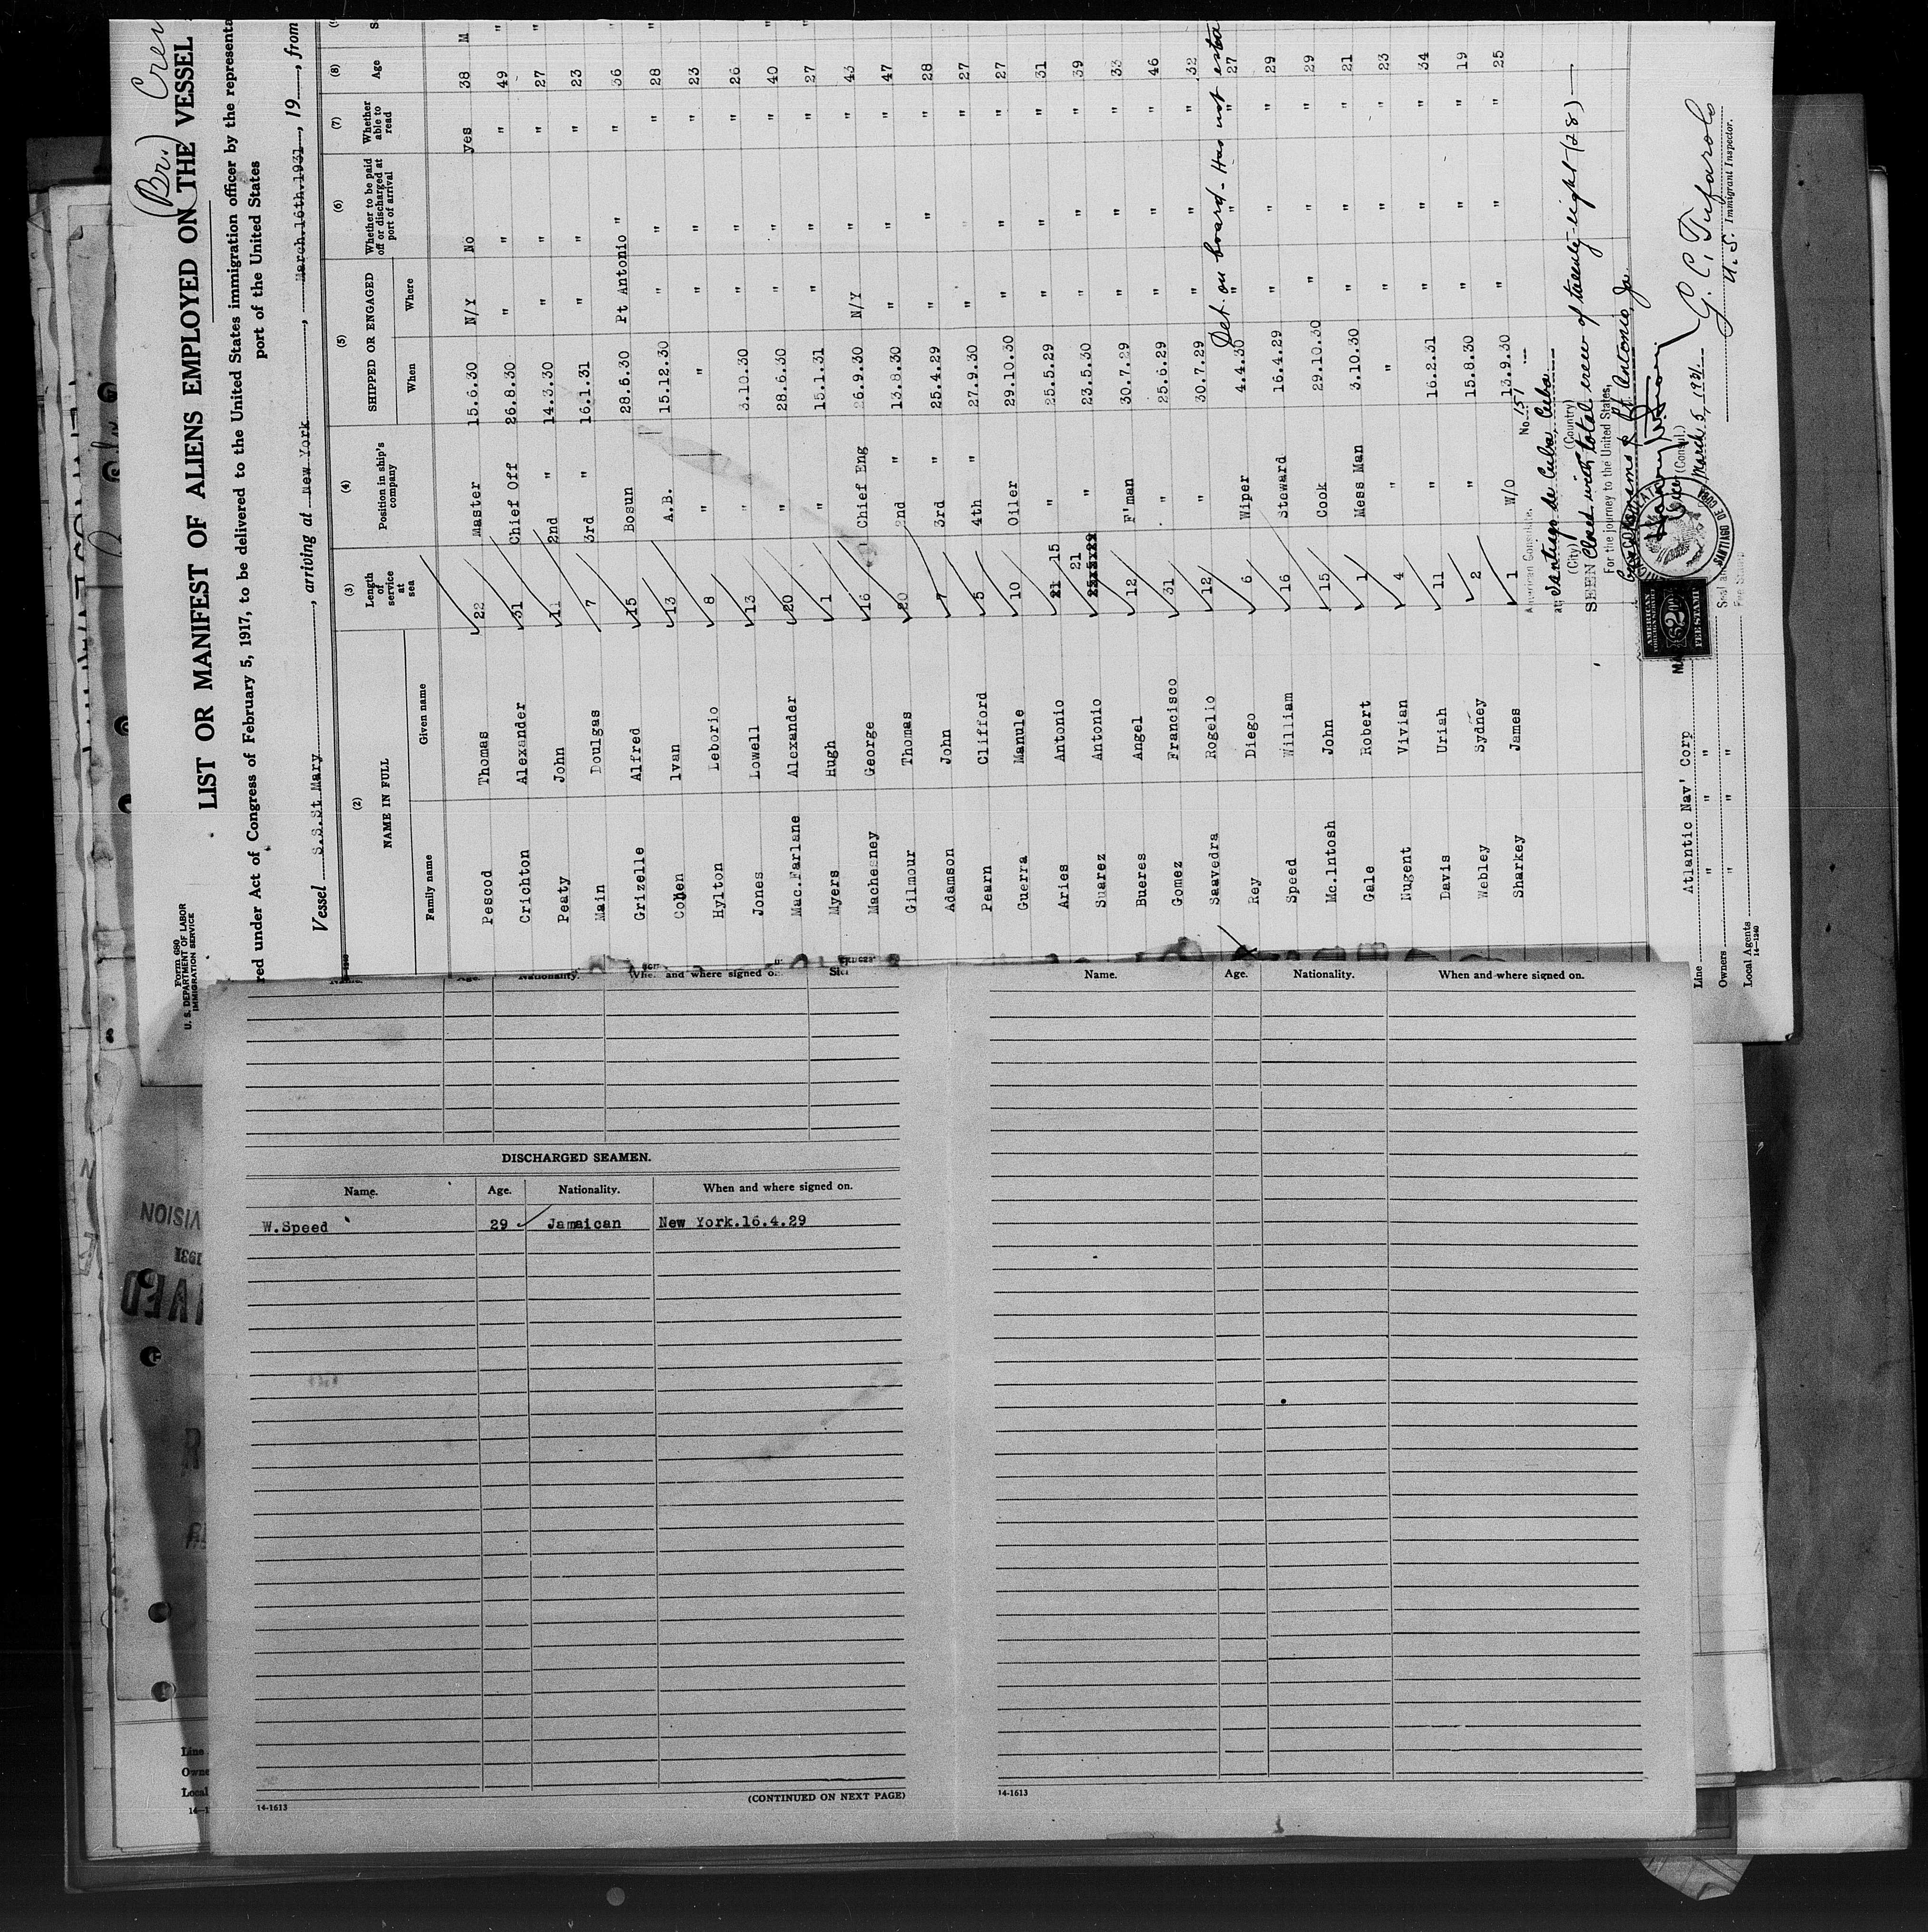 (Br.)
LIST OR MANIFEST OF ALIENS EMPLOYED ON THE VESSEL
Form 680
U. S. DEPARTMENT OF LABOR
IMMIGRATION SERVICE
red under Act of Congress of February 5, 1917, to be delivered to the United States immigration officer by the representa
port of the United States
Vessel S.S.St Mary, arriving at New York, March.16th.1931, 19, from
(2) (3) (4) (5) (6) (7) (8)
NAME IN FULL Length of service at sea Position in ship's company SHIPPED OR ENGAGED Whether to be paid off or discharged at port of arrival Whether able to read Age
Family name Given name When Where
Pescod Thomas 22 Master 15.6.30 N/Y No yes 38 M
Crichton Alexander 31 Chief Off 26.8.30 " " " 49 "
Peaty John 11 2nd " 14.3.30 " " " 27 "
Main Doulgas 7 3rd " 16.1.31 " " " 23
Grizelle Alfred 15 Bosun 28.6.30 Pt Antonio " " 36 "
Coben Ivan 13 A.B. 15.12.30 " " " 28 "
Hylton Leborio 8 " " " " " 23
Jones Lowell 13 " 3.10.30 " " " 26
Mac.Farlane Alexander 20 " 28.6.30 " " " 40 "
Myers Hugh 1 " 15.1.31 " " " 27 "
Machesney George 16 Chief Eng 26.9.30 N/Y " " 43
Gilmour Thomas 20 2nd " 13.8.30 " " " 47
Adamson John 7 3rd " 25.4.29 " " " 28
Pearn Clifford 5 4th " 27.9.30 " " " 27
Guerra Manule 10 Oiler 29.10.30 " " " 27
Aries Antonio 21 15 " 25.5.29 " " " 31
Suarez Antonio 21 " 23.5.30 " " " 39
Bueres Angel 12 F'man 30.7.29 " " " 33
Gomez Francisco 31 " 25.6.29 " " " 46
Saavedra Rogelio 12 " 30.7.29 " " " 32
Det on board - Has not
Rey Diego 6 Wiper 4.4.30 " " " 27
Speed William 16 Steward 16.4.29 " " " 29
Mc.lntosh John 15 Cook 29.10.30 " " " 29
Gale Robert 1 Mess Man 3.10.30 " " " 21
Nugent Vivian 4 " " " " " 23
Davis Uriah 11 " 16.2.31 " " " 34
Webley Sydney 2 " 15.8.30 " " " 19
Sharkey James 1 W/O 13.9.30 " " " 25
American Consulate. No. 151
at Santiago de Cuba, Cuba
(City) (Country)
SEEN Closed with total crew of twenty-eight (28)
For the journey to the United States,
Pt. Antonio, Ja.
(Consul.)
March 5, 1931
SANTIAGO DE CUBA
AMERICAN FOREIGN SERVICE
$2
FEE STAMP
Seal and
Fee Stamp
G. C. Tufarolo
U. S. Immigrant Inspector.
Line Atlantic Nav' Corp
Owners " " "
Local Agents " " "
14-1240
Name. Age. Nationality. When and where signed on.
Name. Age. Nationality. When and where signed on.
DISCHARGED SEAMEN.
Name. Age. Nationality. When and where signed on.
W.Speed 29 Jamaican New York.16.4.29
(CONTINUED ON NEXT PAGE)
14-1613
14-1613
Line
Owne
Local